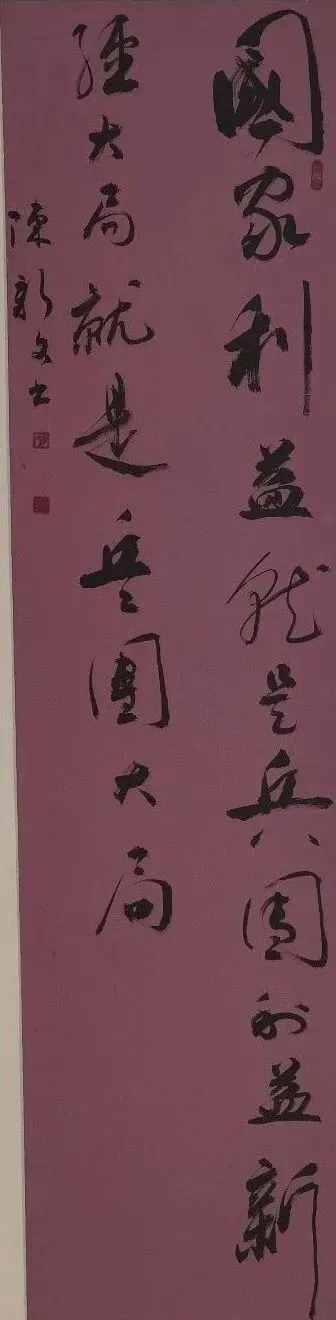 國家利益就是兵團利益新
疆大局就是兵團大局
陳新文書